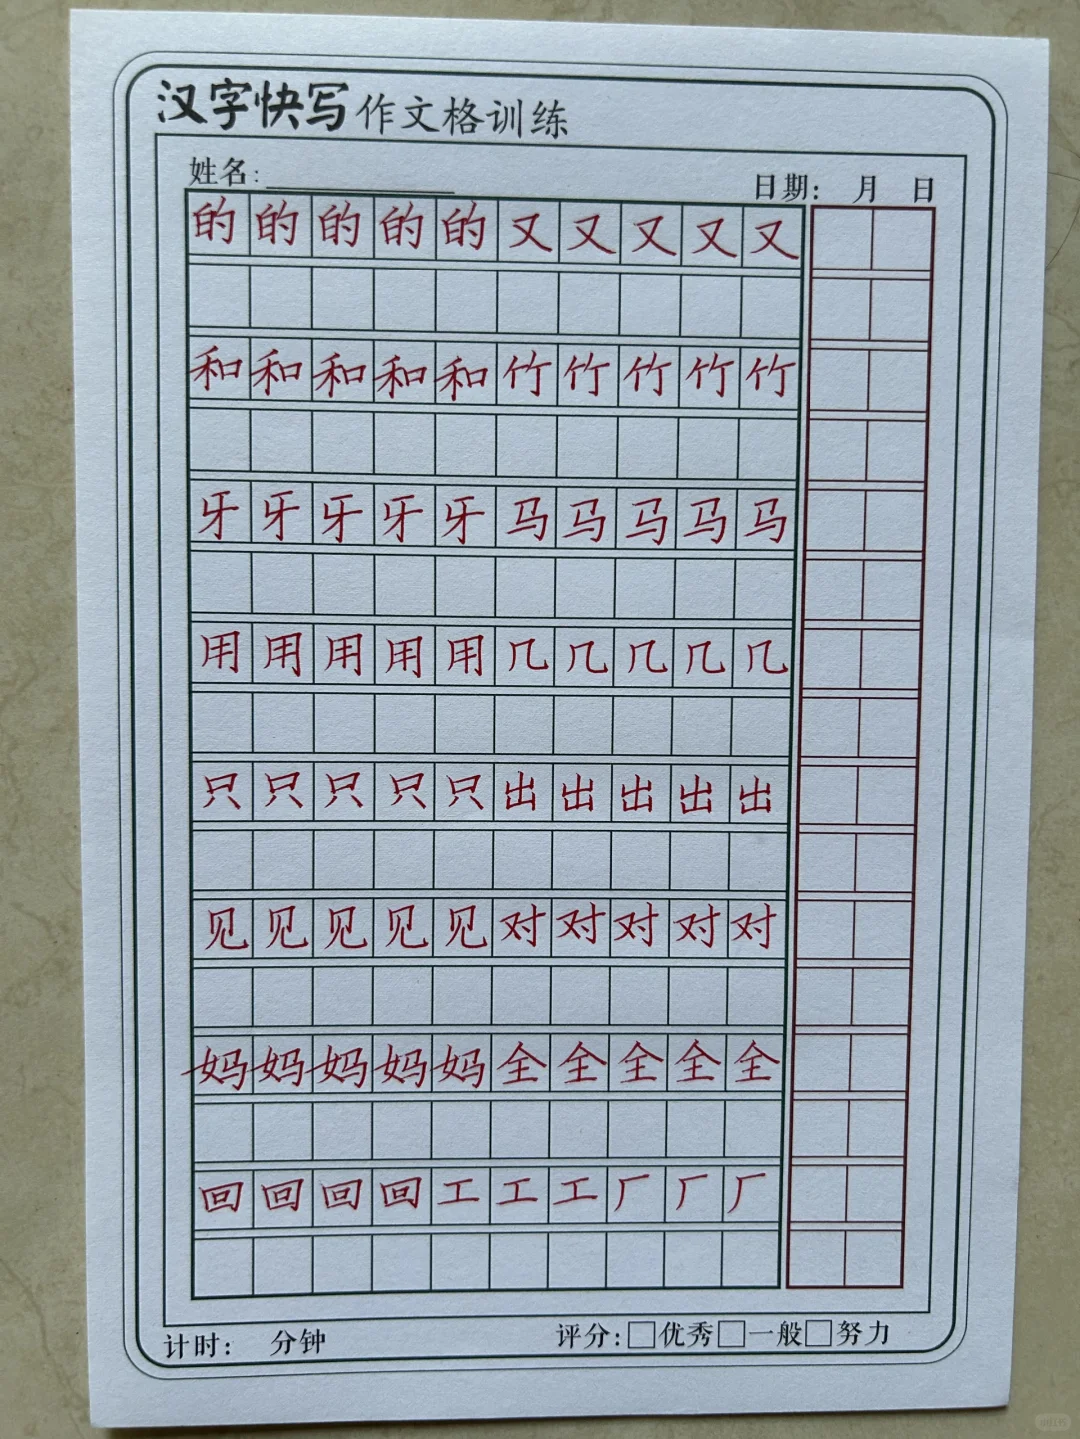 汉字快写作文格训练
姓名: 日期: 月 日
的的的的的又又又又又
和和和和和竹竹竹竹竹
牙牙牙牙牙马马马马马
用用用用用几几几几几
只只只只只出出出出出
见见见见见对对对对对
妈妈妈妈妈全全全全全
回回回回工工工厂厂厂
计时: 分钟 评分:□优秀□一般□努力
小红书